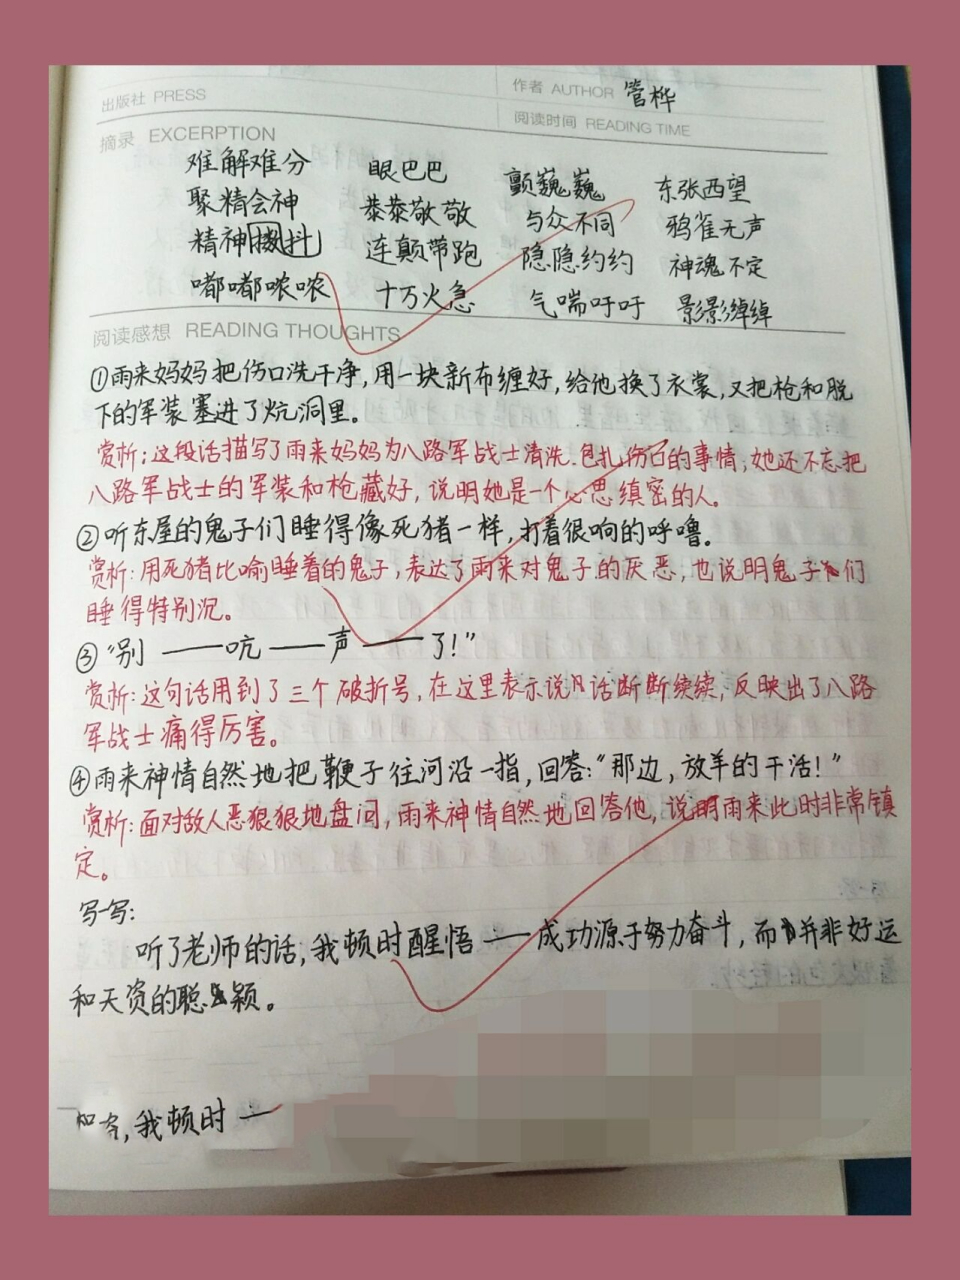 出版社 PRESS
作者 AUTHOR 管桦
阅读时间 READING TIME
摘录 EXCERPTION
难解难分 眼巴巴 颤巍巍 东张西望
聚精会神 恭恭敬敬 与众不同 鸦雀无声
精神抖 连颠带跑 隐隐约约 神魂不定
嘟嘟哝哝 十万火急 气喘吁吁 影影绰绰
阅读感想 READING THOUGHTS
①雨来妈妈把伤口洗干净,用一块新布缠好,给他换了衣裳,又把枪和脱
下的军装塞进了炕洞里。
赏析:这段话描写了雨来妈妈为八路军战士清洗、包扎伤口的事情,她还不忘把
八路军战士的军装和枪藏好,说明她是一个心思缜密的人。
②听东屋的鬼子们睡得像死猪一样,打着很响的呼噜。
赏析:用死猪比喻睡着的鬼子,表达了雨来对鬼子的厌恶,也说明鬼子们
睡得特别沉。
③“别——吭——声——了!”
赏析:这句话用到了三个破折号,在这里表示说话断断续续,反映出了八路
军战士痛得厉害。
④雨来神情自然地把鞭子往河沿一指,回答:“那边,放羊的干活!”
赏析:面对敌人恶狠狠地盘问,雨来神情自然地回答他,说明雨来此时非常镇
定。
写一写:
听了老师的话,我顿时醒悟——成功源于努力奋斗,而并非好运
和天资的聪颖。
,我顿时—